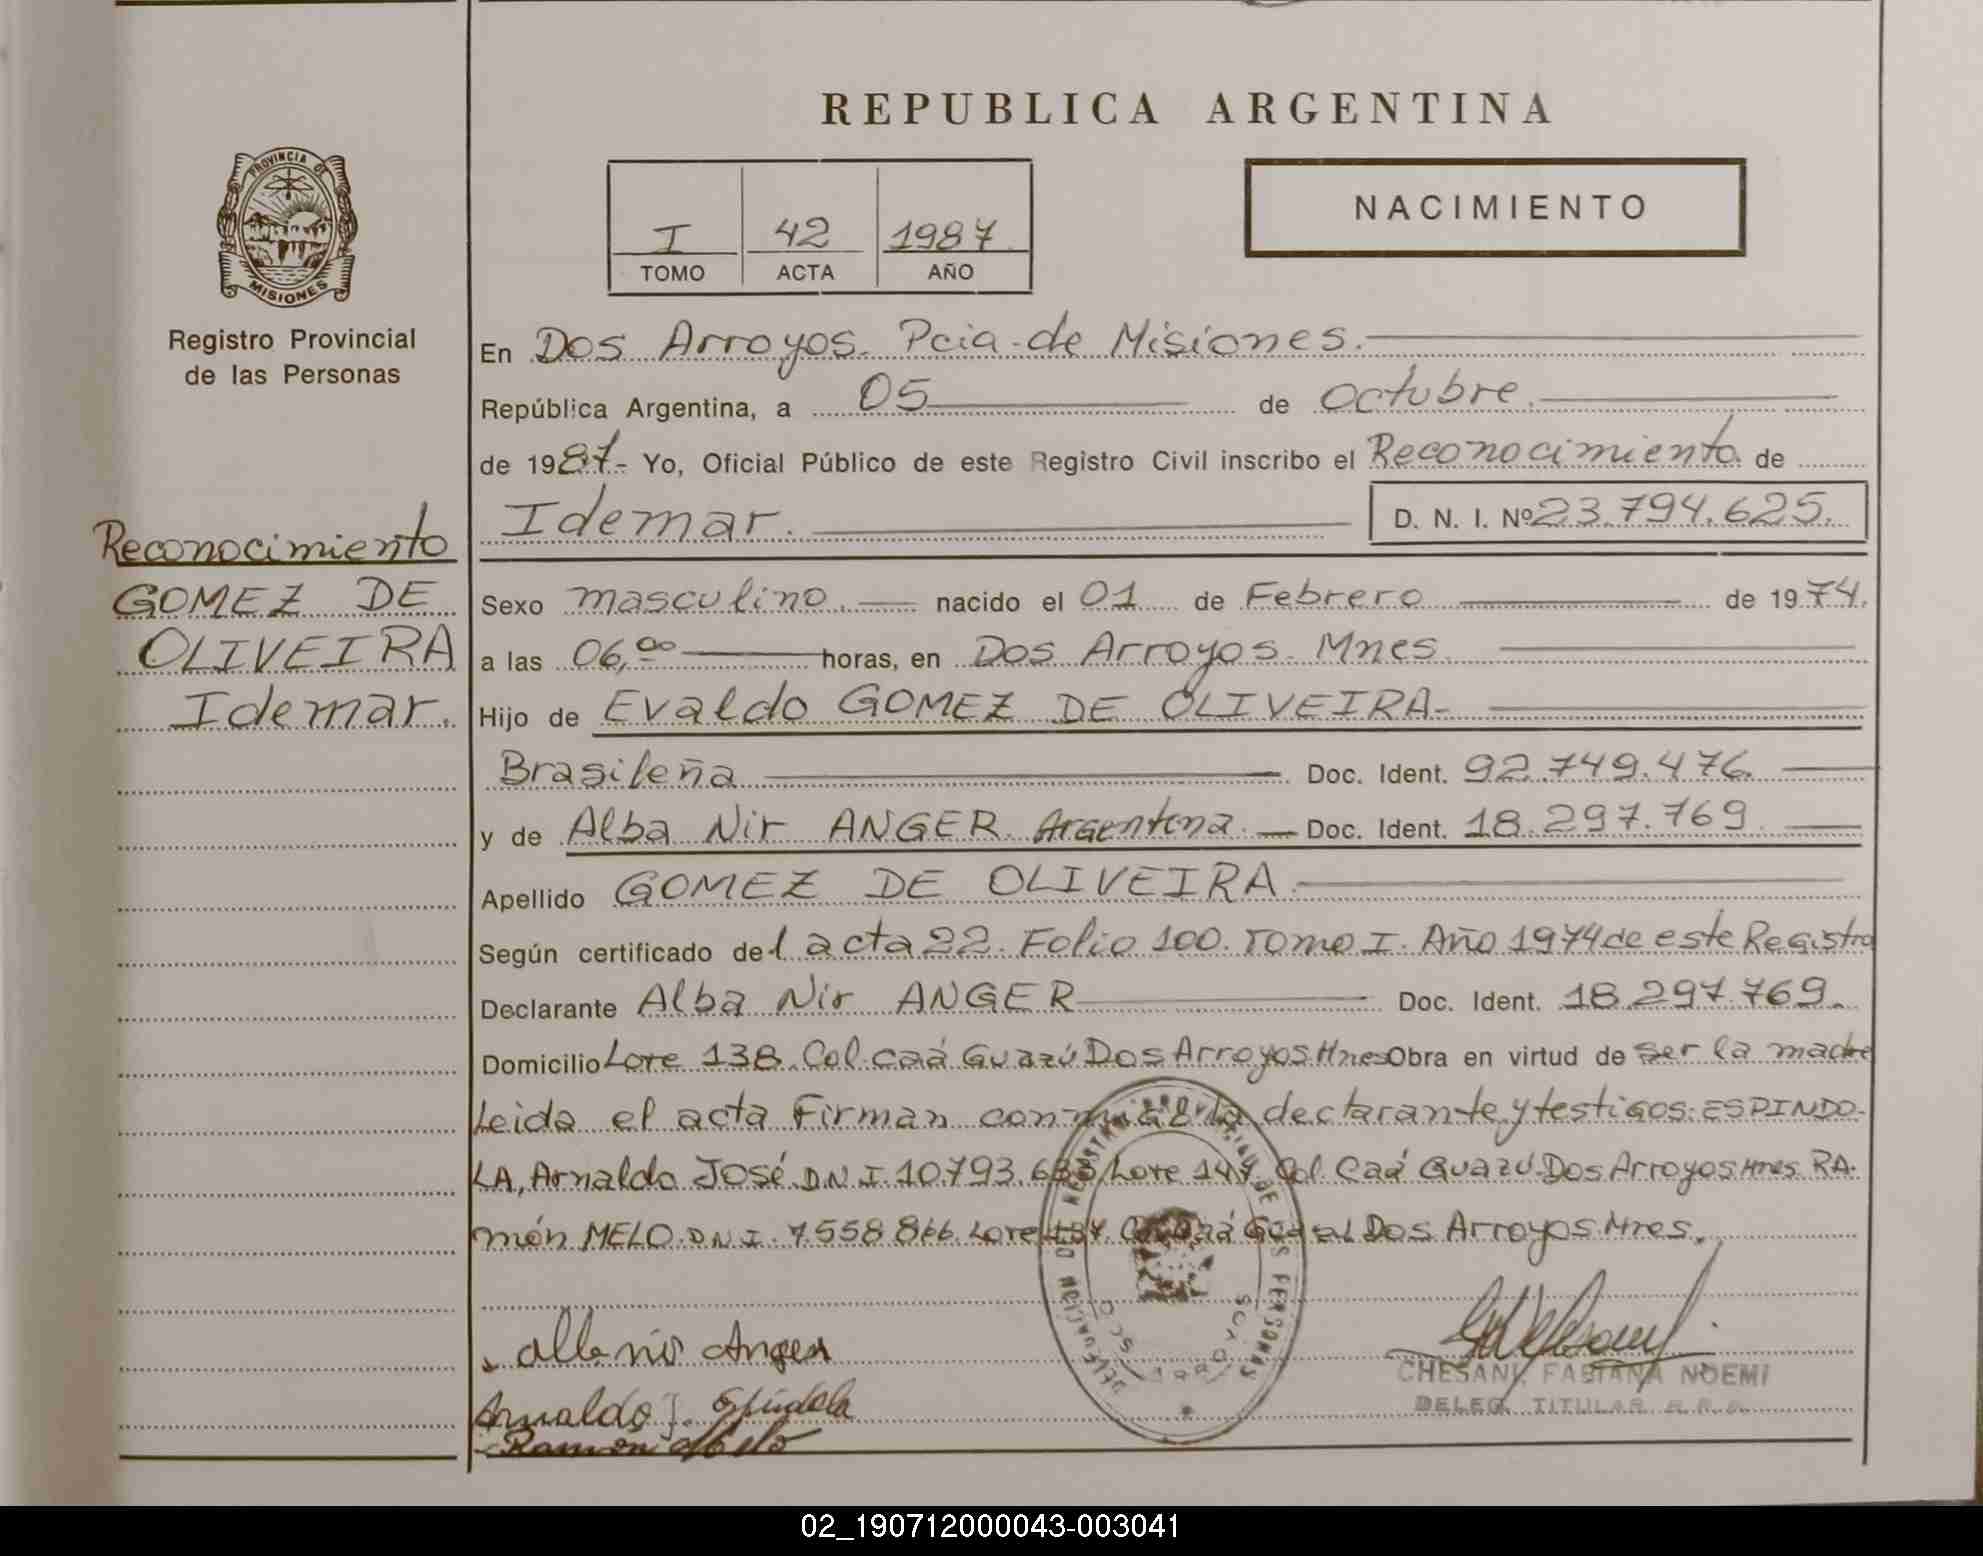 REPUBLICA ARGENTINA
PROVINCIA DE
MISIONES
Registro Provincial
de las Personas
I 42 1987
TOMO ACTA AÑO
NACIMIENTO
En Dos Arroyos. Pcia. de Misiones.
República Argentina, a 05 de octubre.
de 1987.- Yo, Oficial Público de este Registro Civil inscribo el Reconocimiento de
Idemar. D. N. I. Nº 23.794.625.
Reconocimiento
GOMEZ DE
OLIVEIRA
Idemar.
Sexo masculino. nacido el 01 de Febrero de 1974.
a las 06,00 horas, en Dos Arroyos. Mnes
Hijo de Evaldo GOMEZ DE OLIVEIRA-
Brasileña Doc. Ident. 92.749.476.
y de Alba Nir ANGER. Argentina. Doc. Ident. 18.297.769
Apellido GOMEZ DE OLIVEIRA.
Según certificado del acta 22. Folio 100. Tomo I. Año 1974 de este Registro
Declarante Alba Nir ANGER Doc. Ident. 18.297.769.
Domicilio Lote 138. Col. caá Guazú Dos Arroyos Mnes Obra en virtud de ser la madre
Leida el acta Firman conmigo la declarante y testigos: ESPINDO-
LA, Arnaldo José D.N.I. 10.793.633 Lote 147 Col. Caá Guazú. Dos Arroyos Mnes. RA-
món MELO. D.N.I. 7.558.866. Lote Caá Dos Arroyos Mnes.
Alba nir Anger
Arnaldo J. Espíndola
Ramon Melo
CHESANI, FABIANA NOEMI
DELEG. TITULAR R.P.P.
02_190712000043-003041